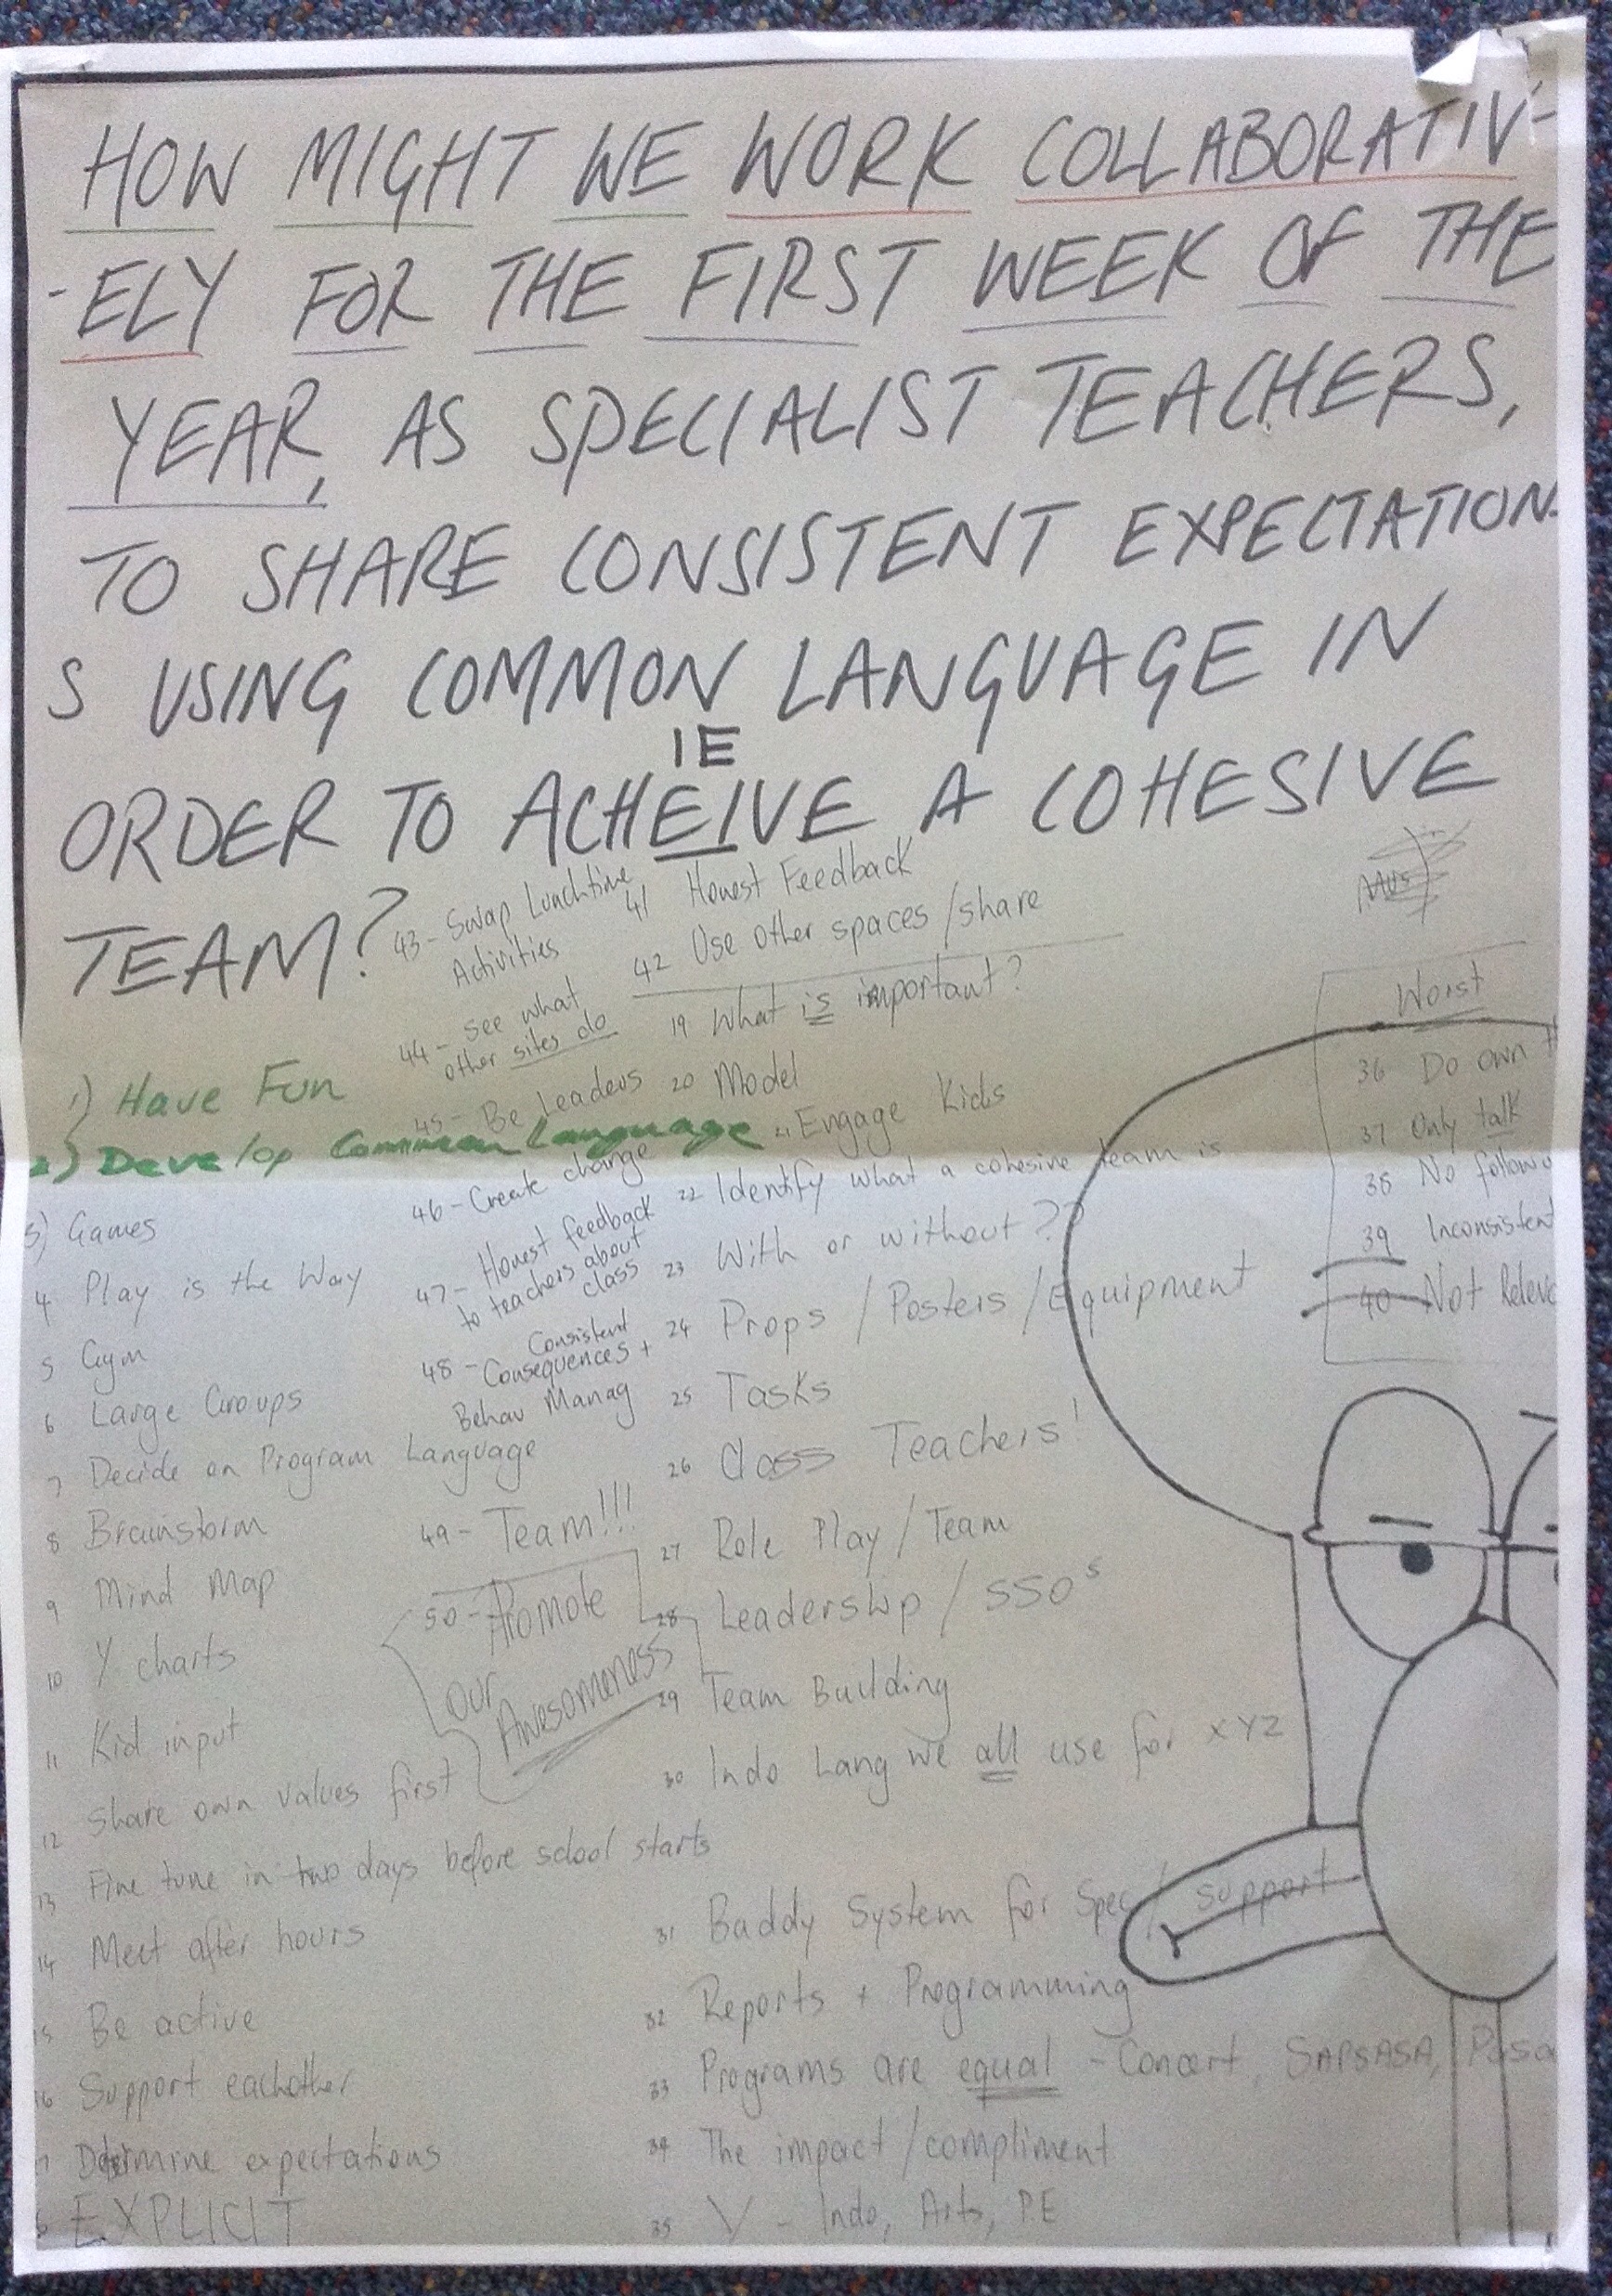 HOW MIGHT WE WORK COLLABORATIV-
-ELY FOR THE FIRST WEEK OF THE
YEAR, AS SPECIALIST TEACHERS,
TO SHARE CONSISTENT EXPECTATION
S USING COMMON LANGUAGE IN
IE
ORDER TO ACHEIVE A COHESIVE
TEAM?
1) Have Fun
2) Develop Common Language
3) Games
4 Play is the Way
5 Gym
6 Large Groups
7 Decide on Program Language
8 Brainstorm
9 Mind Map
10 Y charts
11 Kid input
12 Share own values first
13 Fine tune in two days before school starts
14 Meet after hours
15 Be active
16 Support eachother
17 Determine expectations
EXPLICIT
43 - Swap Lunchtime
Activities
44 - See what
other sites do
45 - Be Leaders
46 - Create change
47 - Honest feedback
to teachers about
class
48 - Consistent
Consequences +
Behav Manag
49 - Team!!!
50 - Promote
our
Awesomeness
41 Honest Feedback
42 Use other spaces/share
19 What is important?
20 Model
21 Engage Kids
22 Identify what a cohesive team is
23 With or without??
24 Props / Posters / Equipment
25 Tasks
26 Class Teachers!
27 Role Play / Team
28 Leadership / SSOs
29 Team Building
30 Indo Lang we all use for XYZ
31 Buddy System for Spec / support
32 Reports + Programming
33 Programs are equal - Concert, SAPSASA,
34 The impact / compliment
35 V - Indo, Arts, PE
Mus
Worst
36 Do own
37 Only talk
38 No follow
39 Inconsistent
40 Not Releva